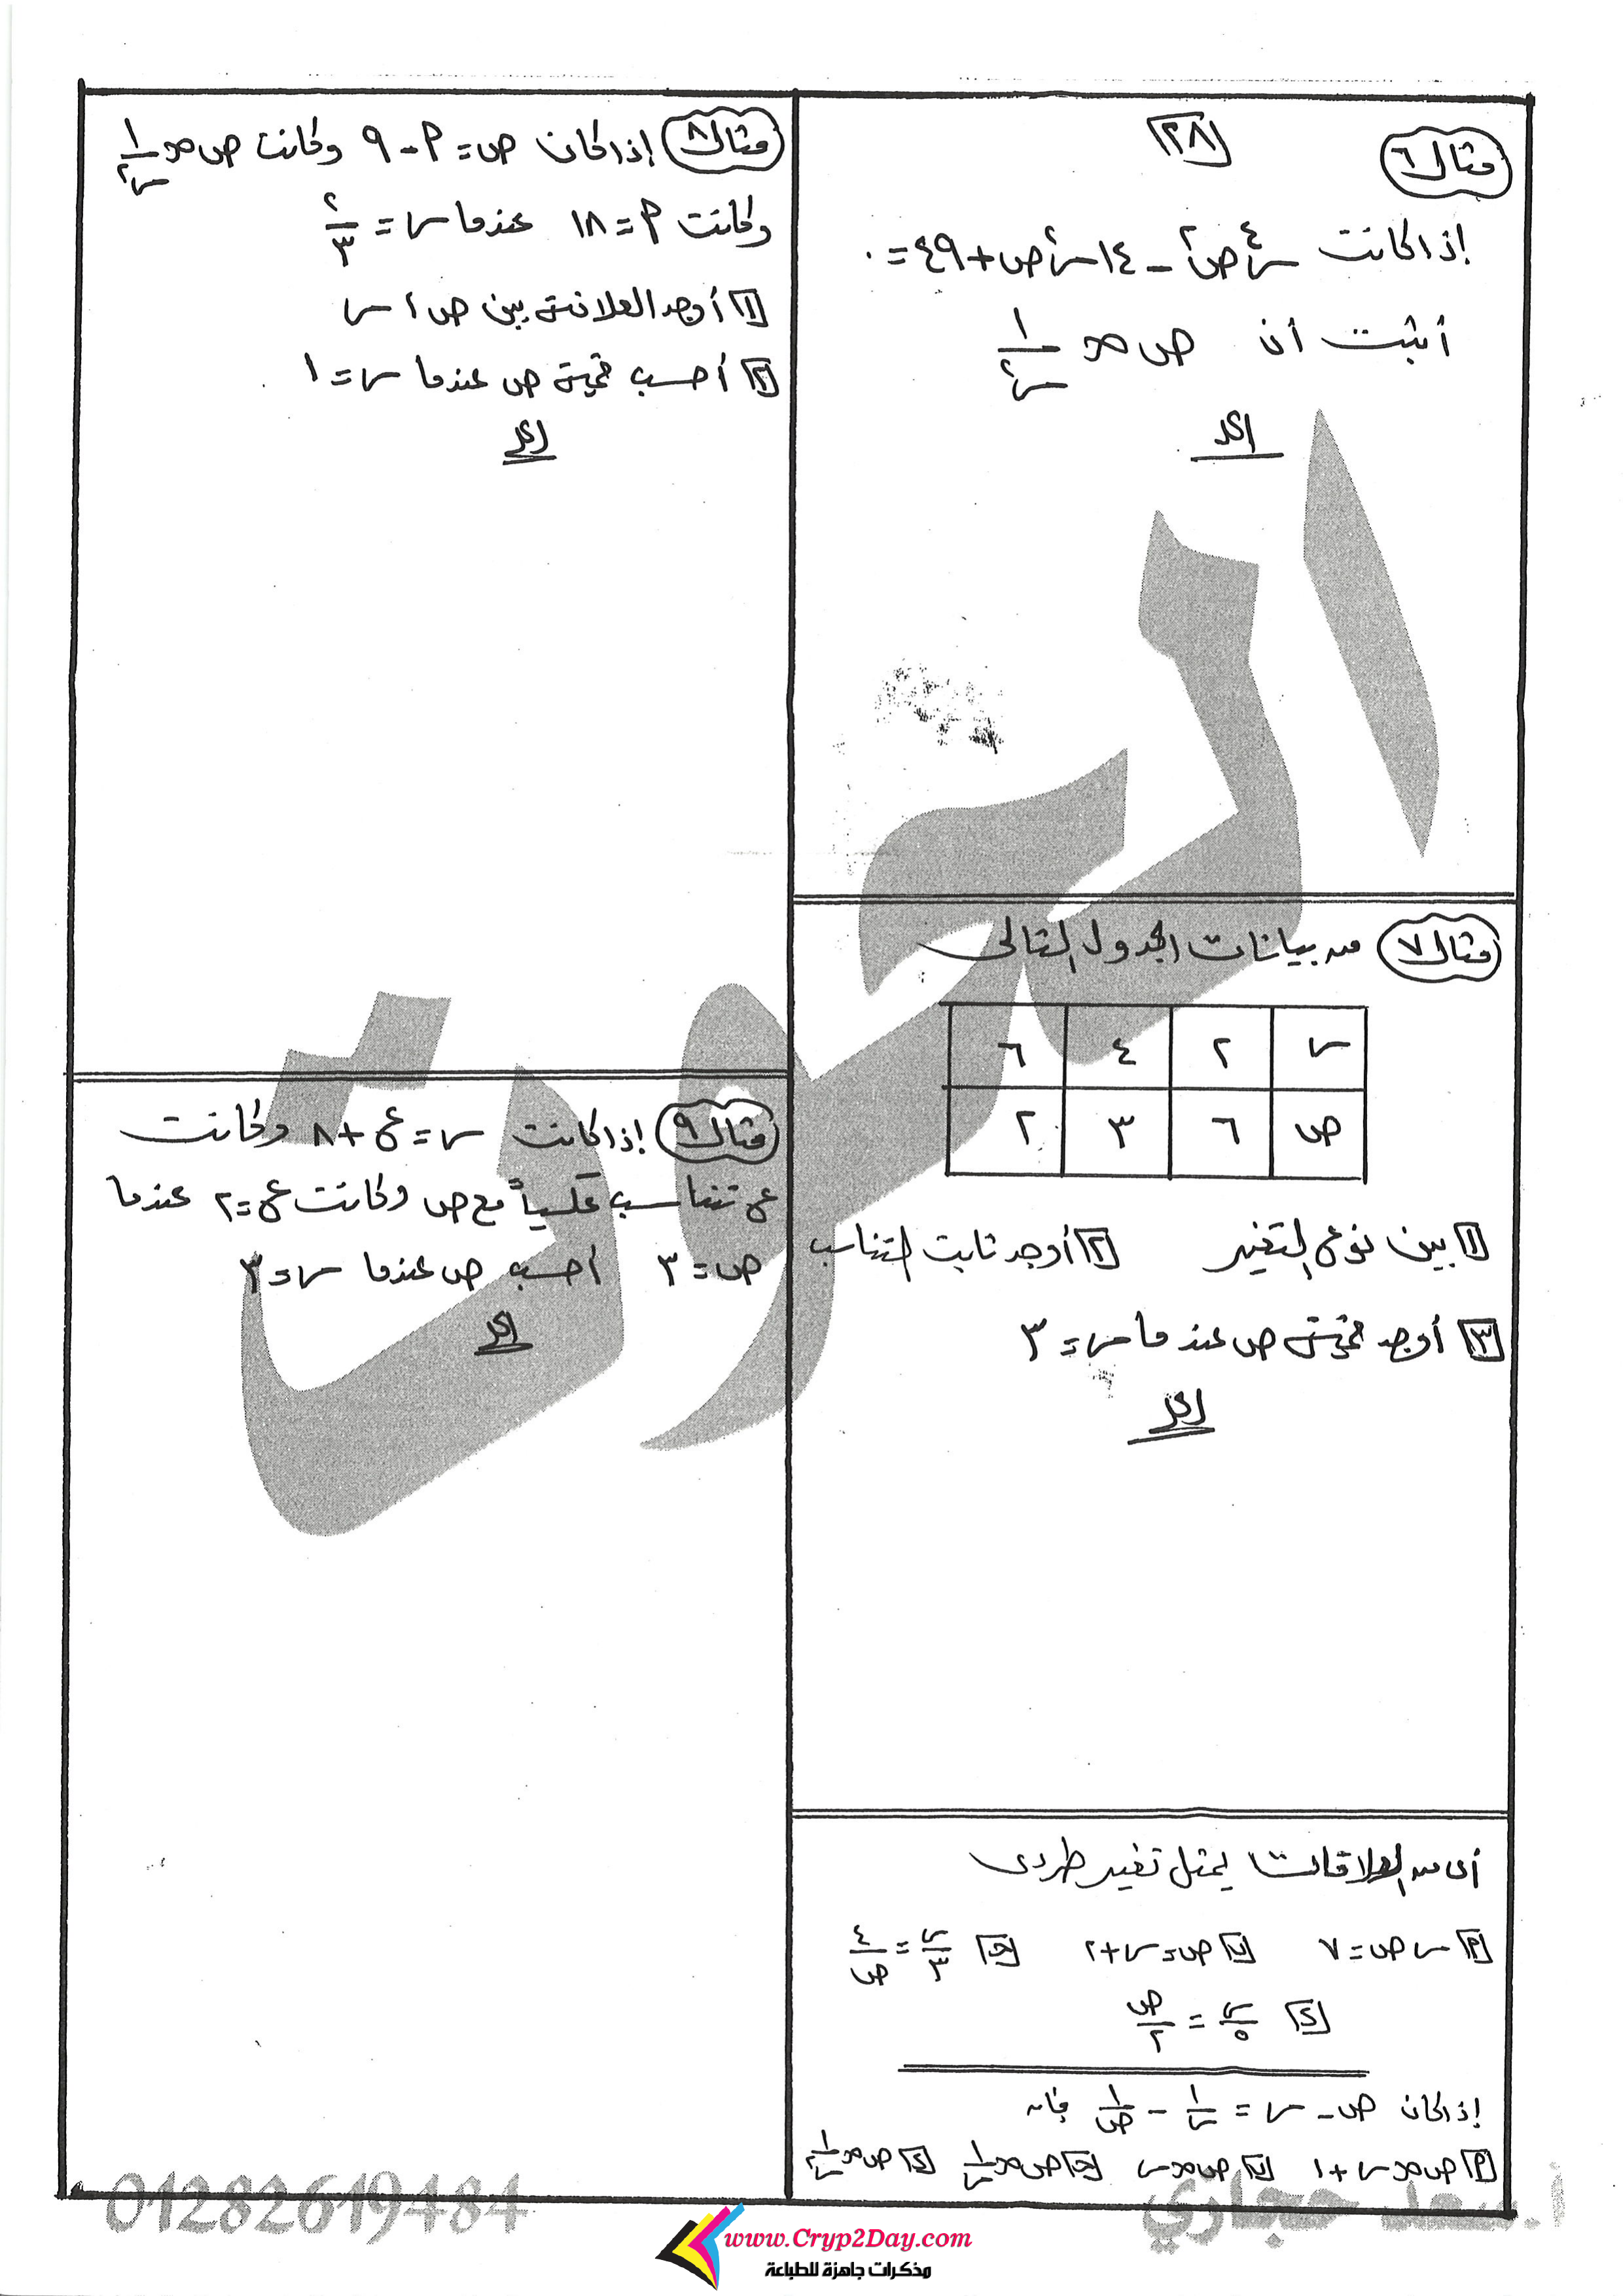 ٢٨
مثال ٦
إذا كانت س⁴ص² - ١٤س²ص + ٤٩ = ٠
أثبت أن ص ∝ ١/س²
الحل
مثال ٧ من بيانات الجدول التالى
س ٢ ٤ ٦
ص ٦ ٣ ٢
١ بين نوع التغير ٢ أوجد ثابت التناسب
٣ أوجد قيمة ص عندما س = ٣
الحل
أى من العلاقات يمثل تغير طردى
أ س ص = ٧ ب ص = س + ٢ ج س/٣ = ٤/ص
د س/٥ = ص/٢
إذا كان ص - س = ١/س - ١/ص فإن
أ ص ∝ س + ١ ب ص ∝ س ج ص ∝ ١/س د ص ∝ ١/س²
مثال ٨ إذا كان ص = أ - ٩ وكانت ص ∝ ١/س²
وكانت أ = ١٨ عندما س = ٢/٣
١ أوجد العلاقة بين ص ، س
٢ أحسب قيمة ص عندما س = ١
الحل
مثال ٩ إذا كانت س = ع + ٨ وكانت
ع تتناسب عكسياً مع ص وكانت ع = ٢ عندما
ص = ٣ أحسب ص عندما س = ٣
الحل
الحوت
أ. سعد حجازي
01282619484
www.Cryp2Day.com
مذكرات جاهزة للطباعة